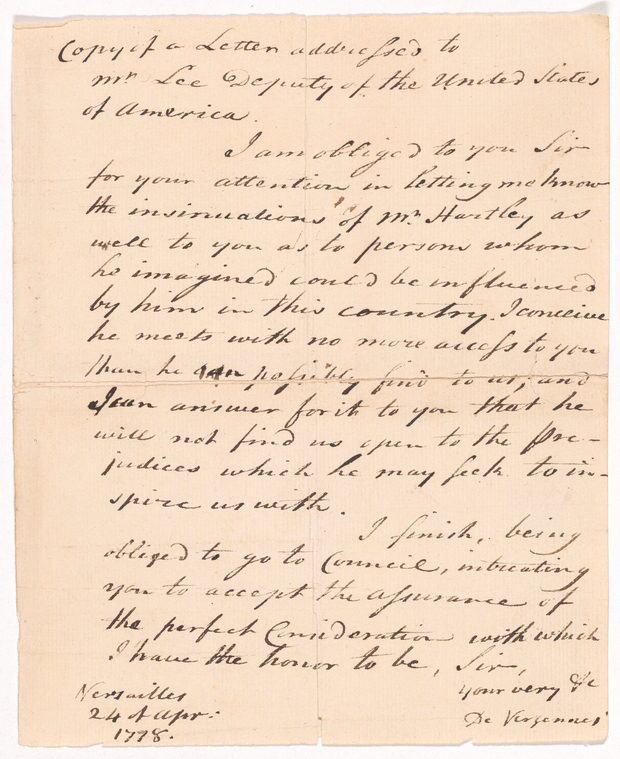 Copy of a Letter addressed to
Mr Lee Deputy of the United States
of America.
I am obliged to you Sir
for your attention in letting me know
the insinuations of Mr Hartley as
well to you as to persons whom
he imagined could be influenced
by him in this country. I conceive
he meets with no more access to you
than he can possibly find to us; and
I can answer for it to you that he
will not find us open to the pre-
judices which he may seek to in-
spire us with.
I finish, being
obliged to go to Council, intreating
you to accept the assurance of
the perfect Consideration with which
I have the honor to be, Sir,
your very &c
Versailles
24 of Apr:
1778.
De Vergennes